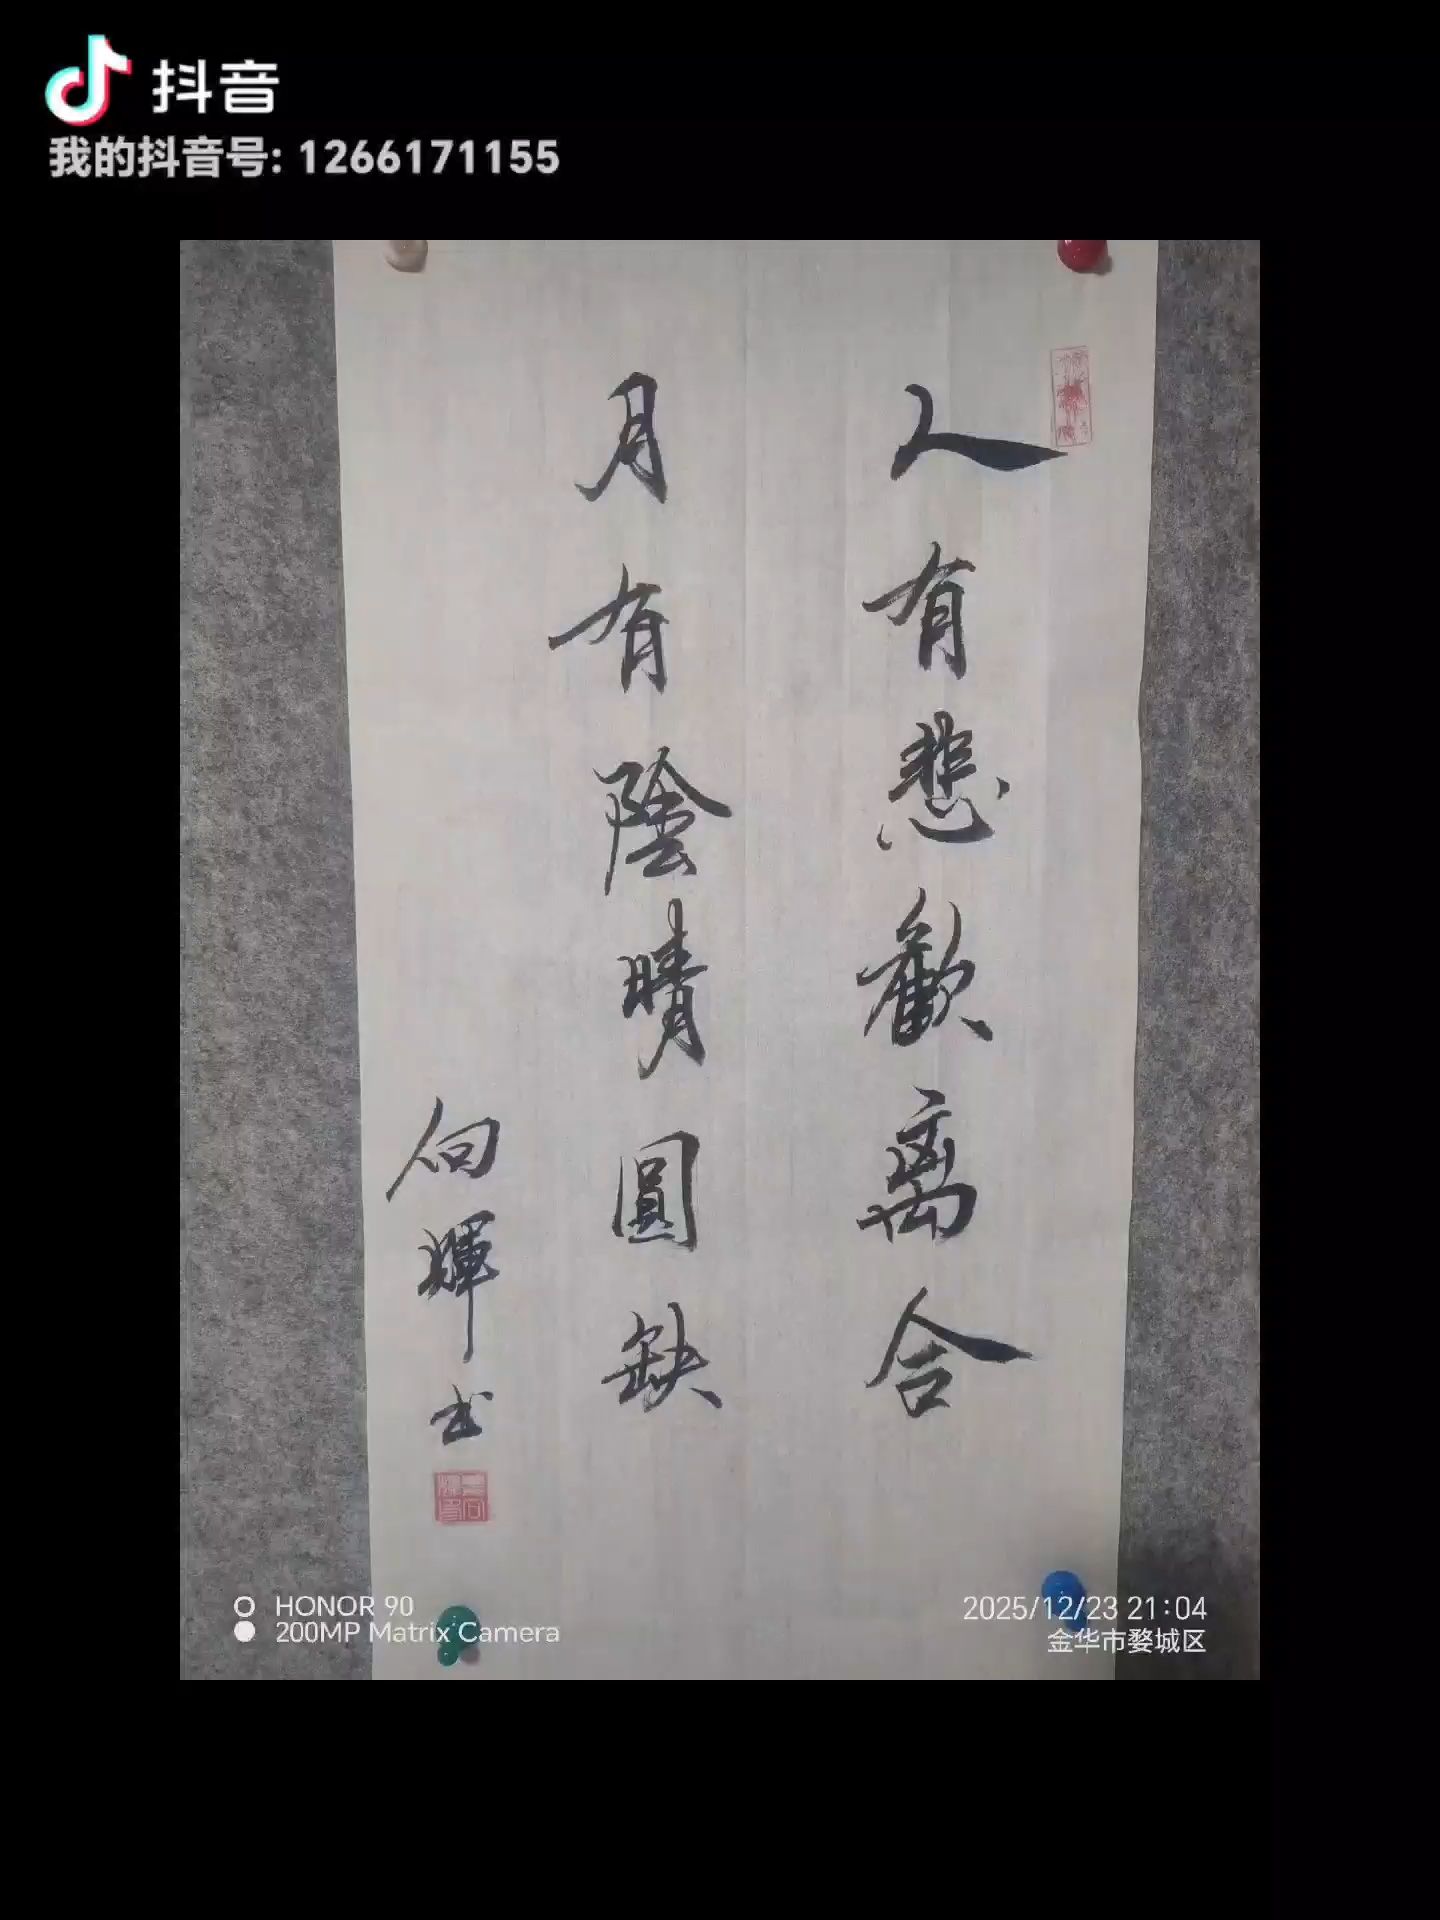 抖音
我的抖音号: 1266171155
人有悲歡离合
月有陰晴圓缺
向暉书
HONOR 90
200MP Matrix Camera
2025/12/23 21:04
金华市婺城区